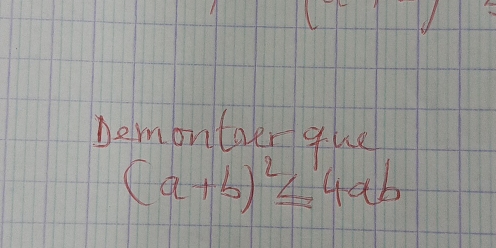 Demontrer que
(a+b)² ≤ 4ab